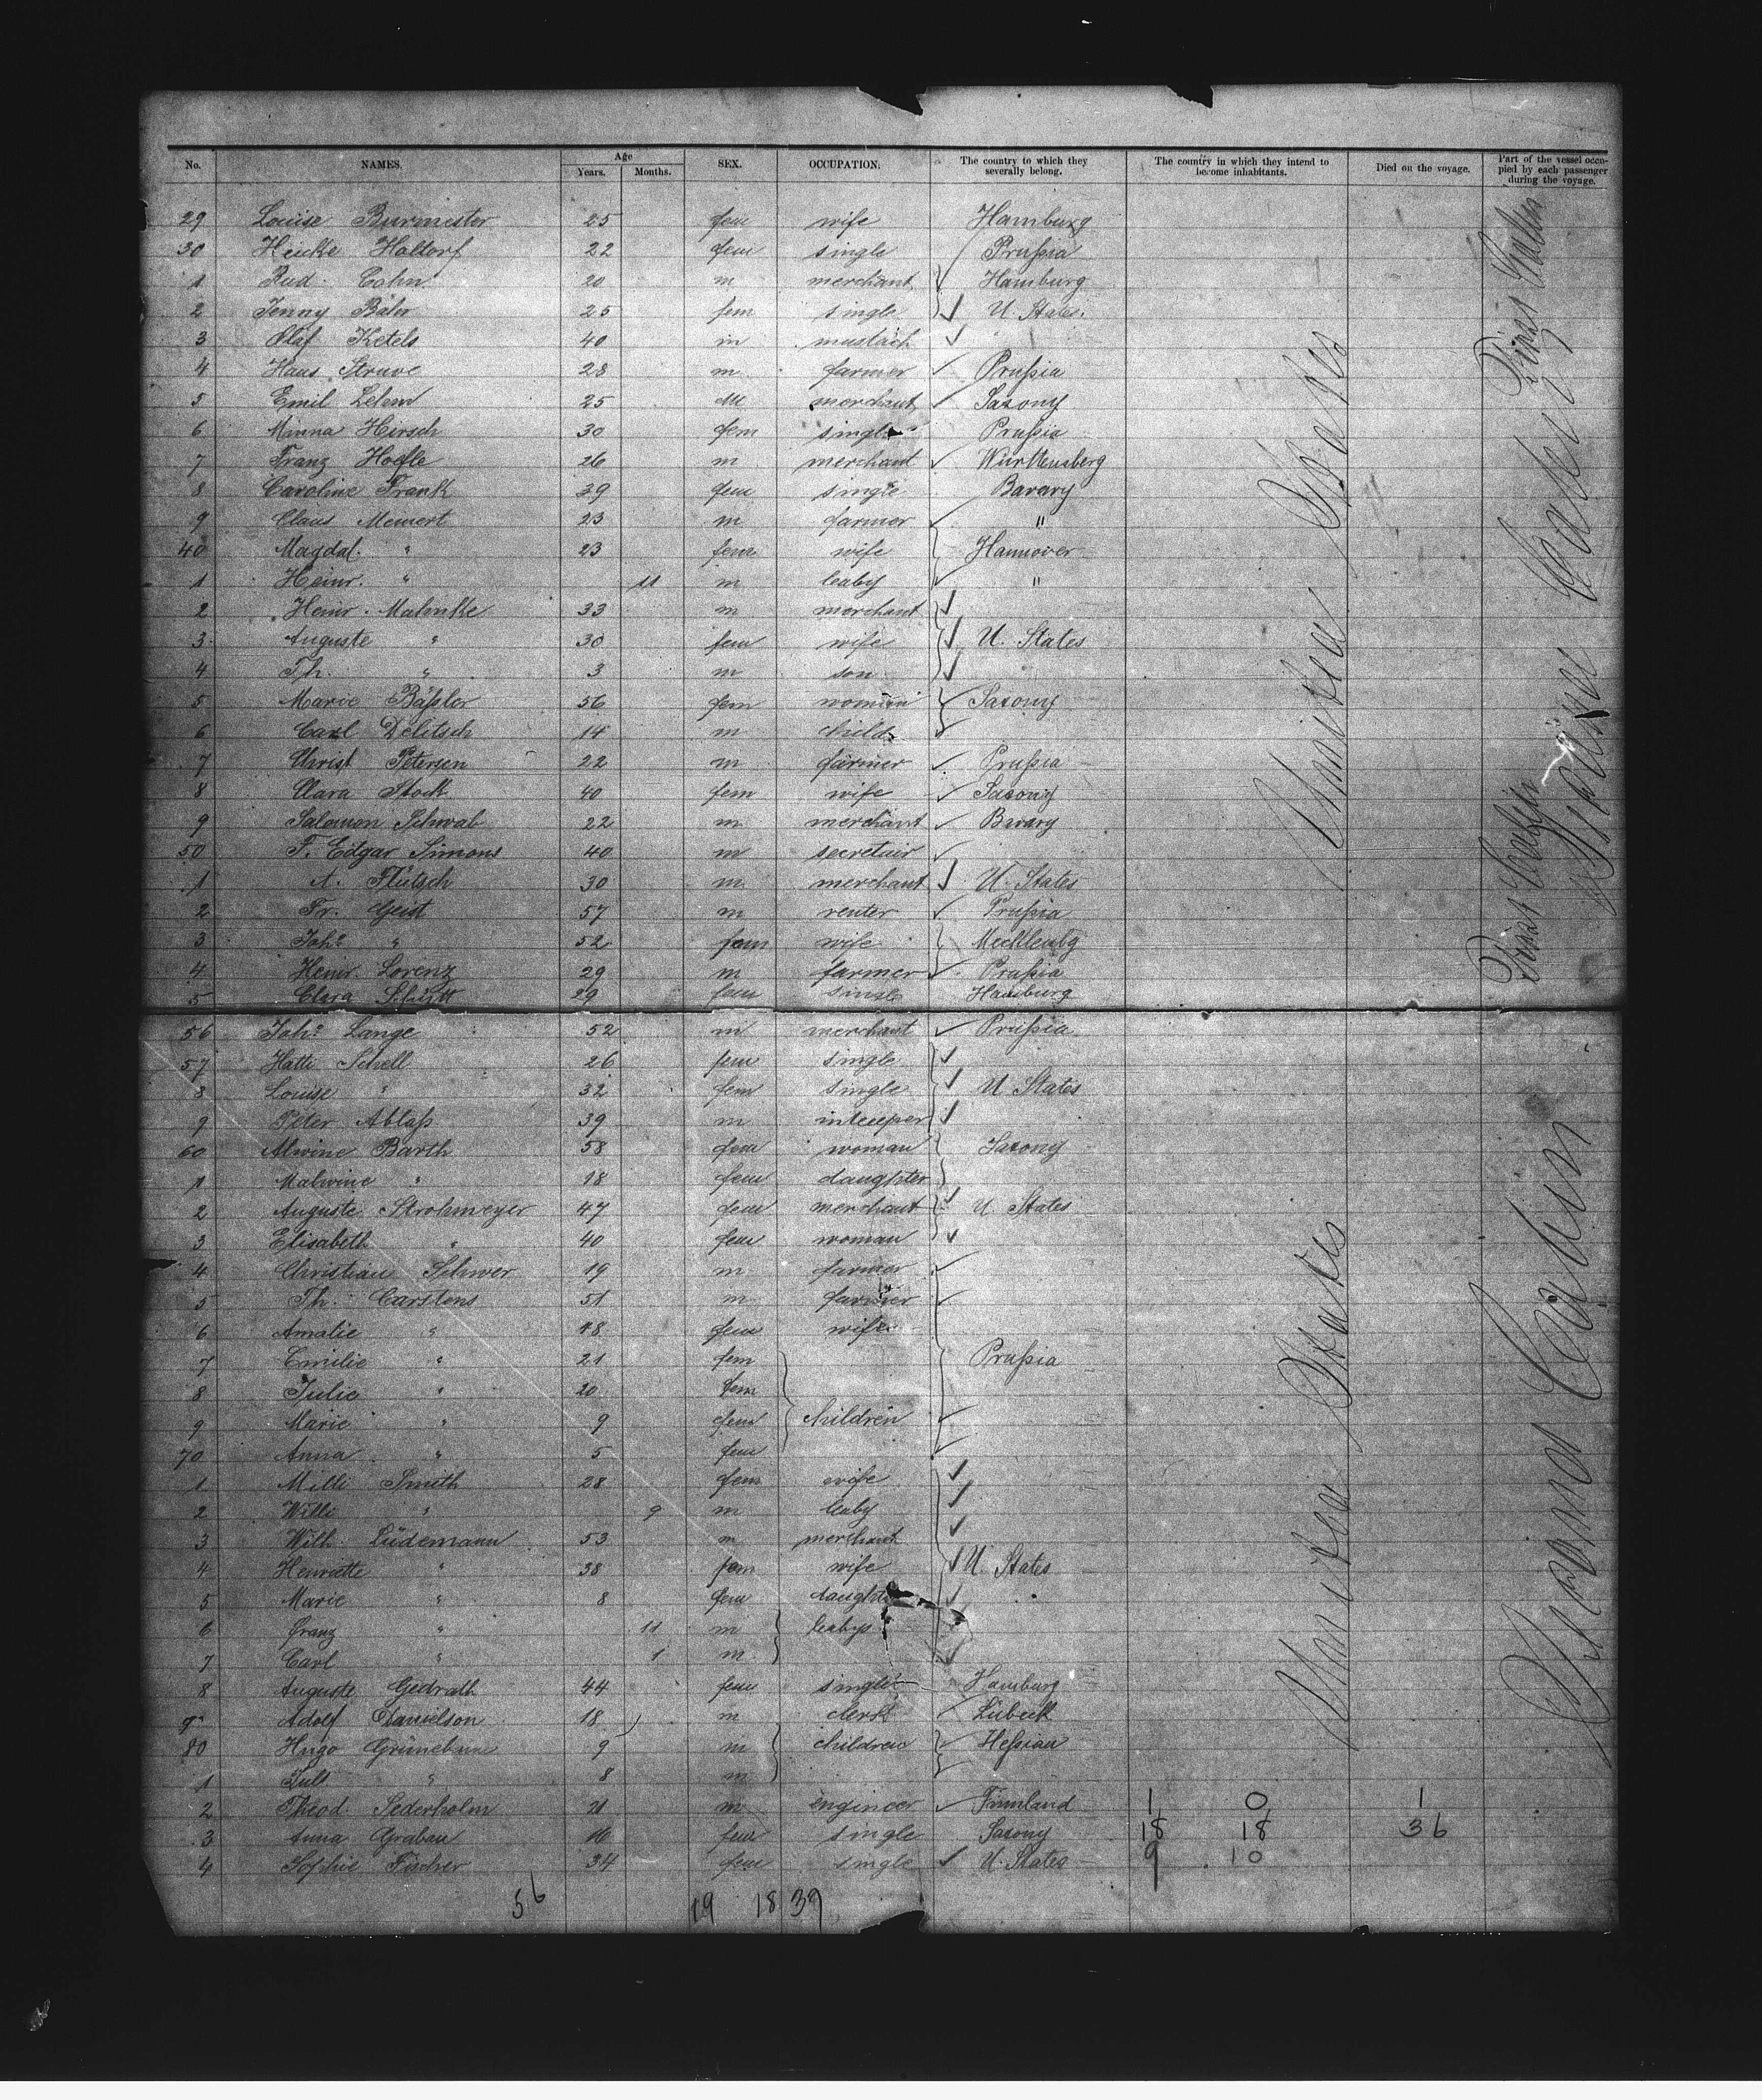 No. NAMES. Age Years. Months. SEX. OCCUPATION. The country to which they severally belong. The country in which they intend to become inhabitants. Died on the voyage. Part of the vessel occupied by each passenger during the voyage.
29 Louise Burmester 25 fem wife Hamburg
30 Heicke Holtorf 22 fem single Prußia
1 Rud. Cohn 20 m merchant Hamburg
2 Jenny 25 fem single U. States
3 Olaf Ketels 40 m
4 Hans Struve 28 m farmer Prußia
5 Emil Lehm 25 m merchant Saxony
6 Minna Hirsch 30 fem single Prußia
7 Franz Hoefle 26 m merchant Würtemberg
8 Caroline Frank 39 fem single Bavary
9 Claus Meinert 23 m farmer "
40 Magdal. " 23 fem wife Hannover
1 Heinr. " 11 m baby "
2 Heinr. Mahnke 33 m merchant
3 Auguste " 30 fem wife U. States
4 Th. " 3 m son
5 Marie Bäßler 56 fem woman Saxony
6 Carl Delitsch 14 m child
7 Christ Petersen 22 m farmer Prußia
8 Clara Stock 40 fem wife Saxony
9 Salomon Schwab 22 m merchant Bavary
50 F. Edgar Simons 40 m secretair
1 A. Flütsch 30 m merchant U. States
2 Fr. Geist 57 m renter Prußia
3 Joh. " 52 fem wife Mecklenbg
4 Heinr. Lorenz 29 m farmer Prußia
5 Clara Schütt 29 fem single Hamburg
56 Joh. Lange 52 m merchant Prußia
57 Hatti Schell 26 fem single
8 Louise " 32 fem single U. States
9 Peter Ablaß 39 m
60 Alwine Barth 58 fem woman Saxony
1 Malwine " 18 fem daughter
2 Auguste Strohmeyer 47 fem merchant U. States
3 Elisabeth " 40 fem woman
4 Christian Schwer 19 m farmer
5 Th. Carstens 51 m farmer
6 Amalie " 48 fem wife
7 Emilie " 21 fem Prußia
8 Julie " 20 fem
9 Marie " 9 fem children
70 Anna " 5 fem
1 Milli Smith 28 fem wife
2 Willi " 9 m baby
3 Wilh. Lüdemann 53 m merchant
4 Henriette " 38 fem wife U. States
5 Marie " 8 fem daughter
6 Franz " 11 m babys
7 Carl " 1 m
8 Auguste Gedrath 44 fem single Hamburg
9 Adolf Danielson 18 m clerk Lübeck
80 Hugo Grünebaum 9 m children Heßian
1 Juls " 8 m
2 Theod. Sederholm 21 m engineer Finnland 1 0 1
3 Anna Grabau 16 fem single Saxony 18 18 36
4 Sophie Fischer 34 fem single U. States 9 10
56 19 18 39
United States
United States
First Cabin
Second Cabin